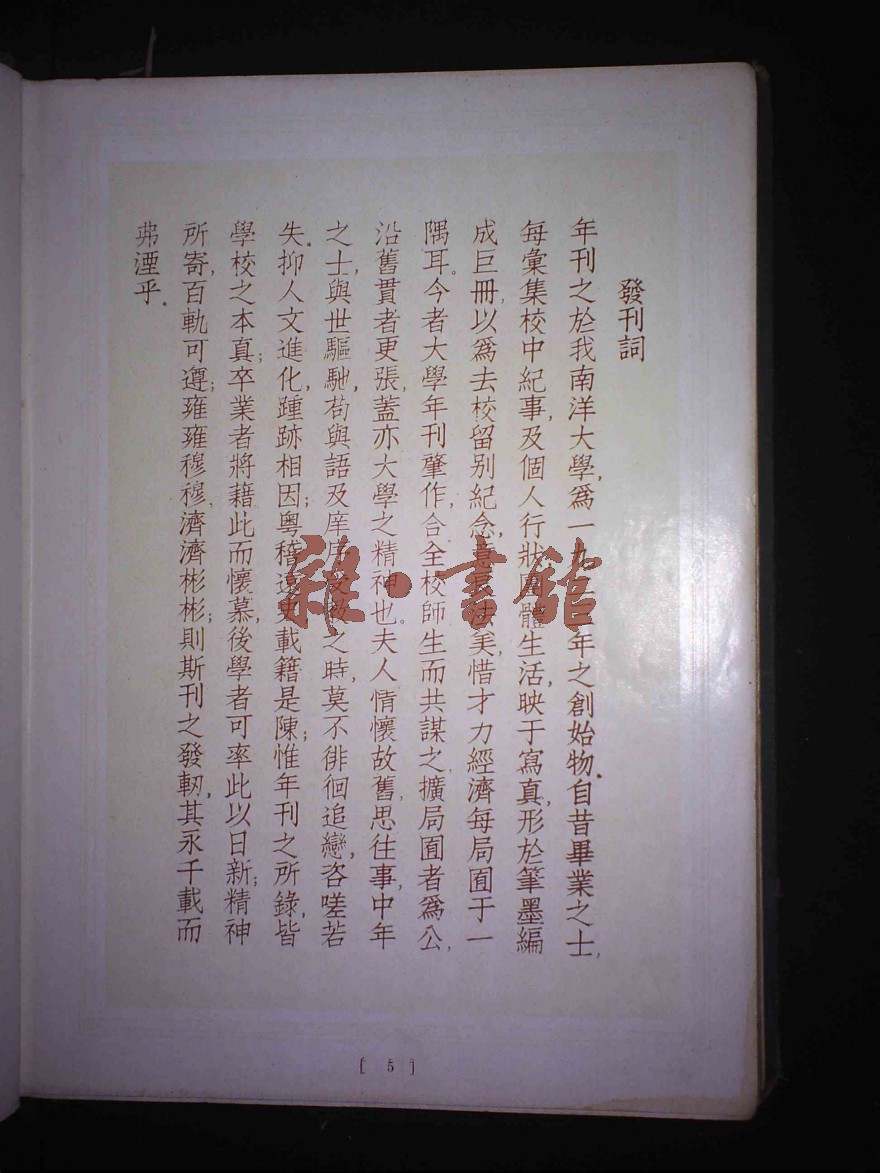 發刊詞
年刊之於我南洋大學,爲一九二年之創始物.自昔畢業之士,
每彙集校中紀事,及個人行狀,團體生活,映于寫真,形於筆墨,編
成巨冊,以爲去校留別紀念,意良法美,惜才力經濟每局囿于一
隅耳。今者大學年刊肇作,合全校師生而共謀之,擴局囿者爲公,
沿舊貫者更張,蓋亦大學之精神也。夫人情懷故舊,思往事,中年
之士,與世驅馳,苟與語及庠序受教之時,莫不徘徊追戀,咨嗟若
失.抑人文進化,踵跡相因;粵稽史載籍是陳;惟年刊之所錄,皆
學校之本真;卒業者將藉此而懷慕,後學者可率此以日新;精神
所寄,百軌可遵;雍雍穆穆,濟濟彬彬;則斯刊之發軔,其永千載而
弗湮乎.
[ 5 ]
雜·書館